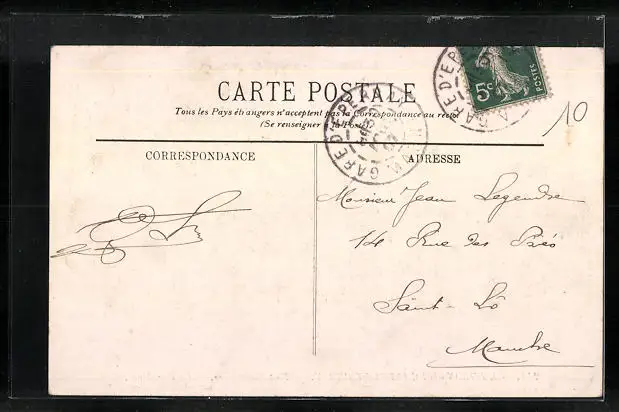 CARTE POSTALE
Tous les Pays étrangers n'acceptent pas la Correspondance au recto
(Se renseigner à la Poste)
CORRESPONDANCE
ADRESSE
Monsieur Jean Legendre
14 Rue des Prés
Saint-Lô
Manche
5c
POSTES
10
GARE D'EPERNAY
GARE D'EPERNAY